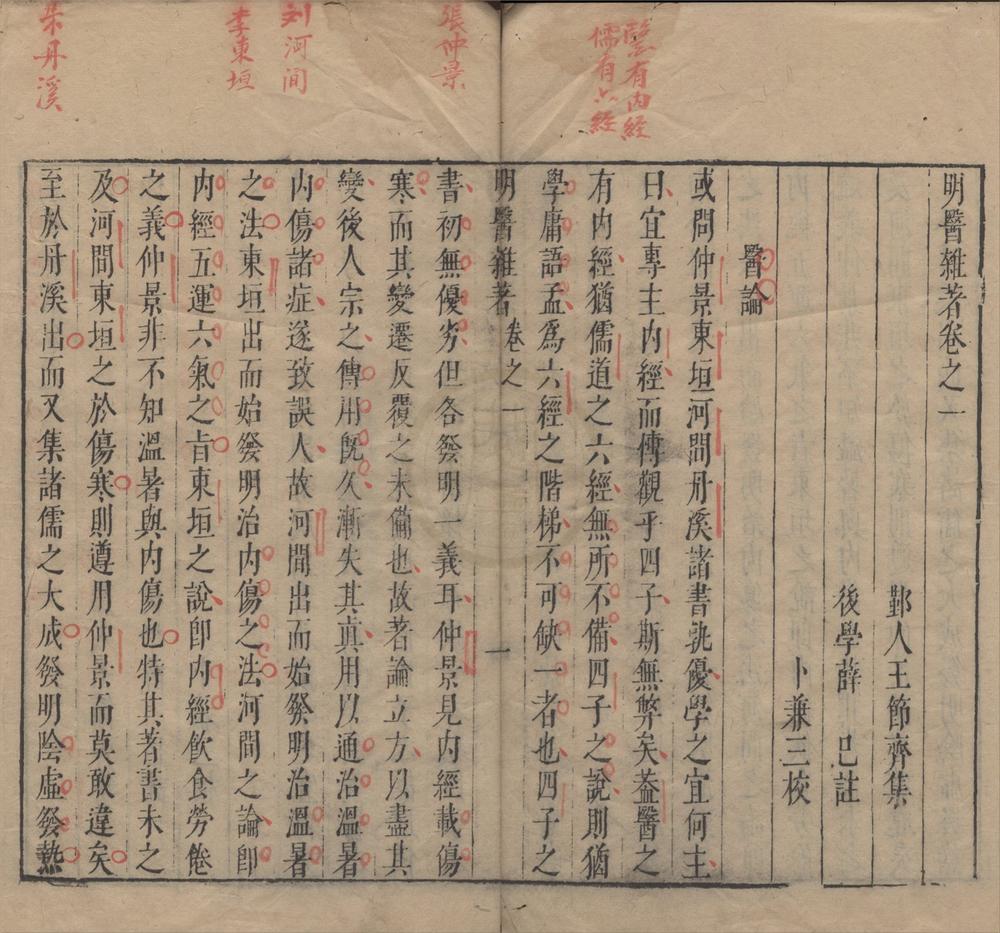 醫有內経
儒有六經
張仲景
刘河间
李東垣
朱丹溪
明醫雜著卷之一
鄞人王節齊集
後學薛己註
卜兼三校
醫論
或問仲景東垣河間丹溪諸書孰優學之宜何主
曰宜專主內經而傳觀乎四子斯無弊矣葢醫之
有内經猶儒道之六經無所不備四子之說則猶
學庸語孟爲六經之階梯不可缺一者也四子之
明醫雜著 卷之一 一
書初無優劣但各發明一義耳仲景見内經載傷
寒而其變遷反覆之未備也故著論立方以盡其
變後人宗之傳用旣久漸失其眞用以通治溫暑
内傷諸症遂致誤人故河間出而始發明治溫暑
之法東垣出而始發明治内傷之法河間之論卽
内經五運六氣之旨東垣之說卽内經飲食勞倦
之義仲景非不知溫暑與内傷也特其著書未之
及河間東垣之於傷寒則遵用仲景而莫敢違矣
至於丹溪出而又集諸儒之大成發明陰虛發熱